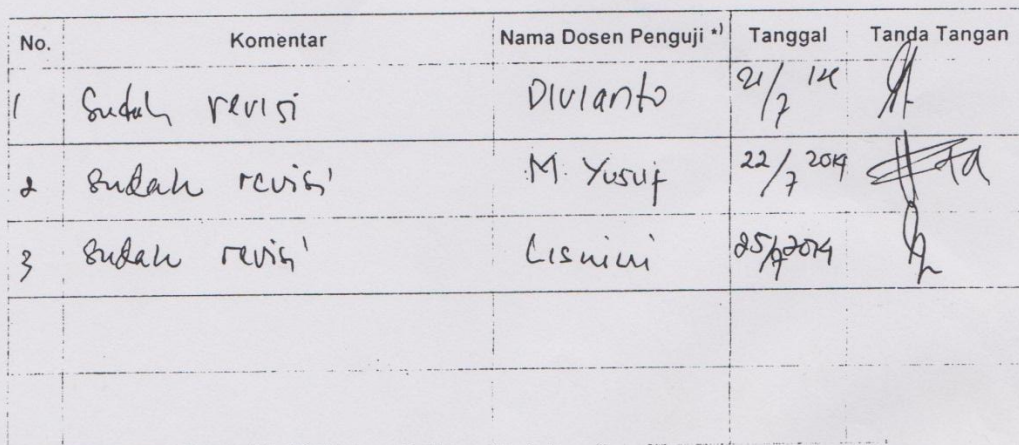 No. Komentar Nama Dosen Penguji *) Tanggal Tanda Tangan
1 Sudah revisi Divianto 21/7 14
2 Sudah revisi M. Yusuf 22/7 2014
3 Sudah revisi Lisnini 25/7 2014